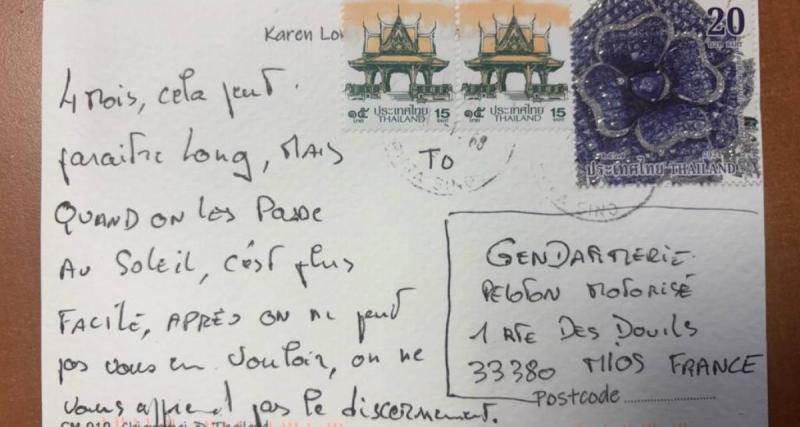 Karen Lo
20
๑๕ ประเทศไทย 15
บาท THAILAND BAHT
๑๕ ประเทศไทย 15
บาท THAILAND BAHT
ประเทศไทย THAILAND
TO
4 mois, cela peut
paraitre long, MAIS
QUAND ON LES PASSE
AU SOLEIL, c'est plus
FACILE, APRÈS ON NE peut
pas vous en vouloir, on ne
vous apprend pas le discernement.
GENDARMERIE
PELOTON MOTORISÉ
1 RTE DES DOUILS
33380 MIOS FRANCE
Postcode
Thailand